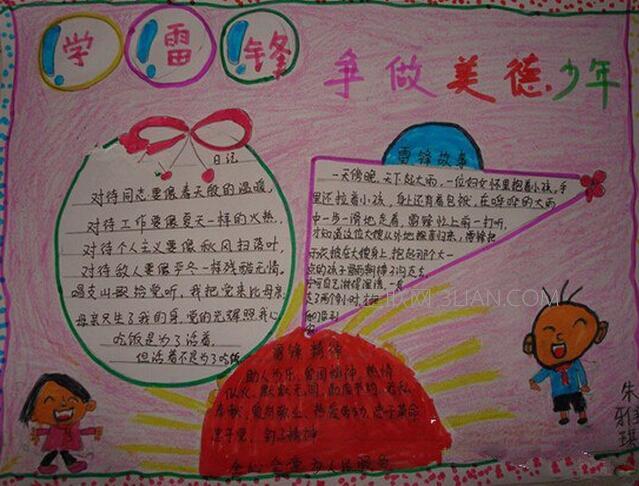 学雷锋
争做美德少年
日记
对待同志要像春天般的温暖,
对待工作要像夏天一样的火热,
对待个人主义要像秋风扫落叶,
对待敌人要像严冬一样残酷无情。
唱支山歌给党听,我把党来比母亲
母亲只生了我的身,党的光辉照我心
吃饭是为了活着,
但活着不是为了吃饭
雷锋故事
一天傍晚,天下起大雨,一位妇女怀里抱着小孩,手
里还拉着小孩,身上还背着包袱,在哗哗的大雨
中一步一滑地走着,雷锋忙上前一打听,
才知道这位大嫂从外地探亲归来,雷锋把
雨衣披在大嫂身上,抱起那个大一
点的孩子
雷锋精神
助人为乐、
勤俭节约、无私
奉献、爱岗敬业、热爱劳动、忠于革命
忠于党、钉子精神
全心全意为人民服务
朱雅
3LIAN.COM